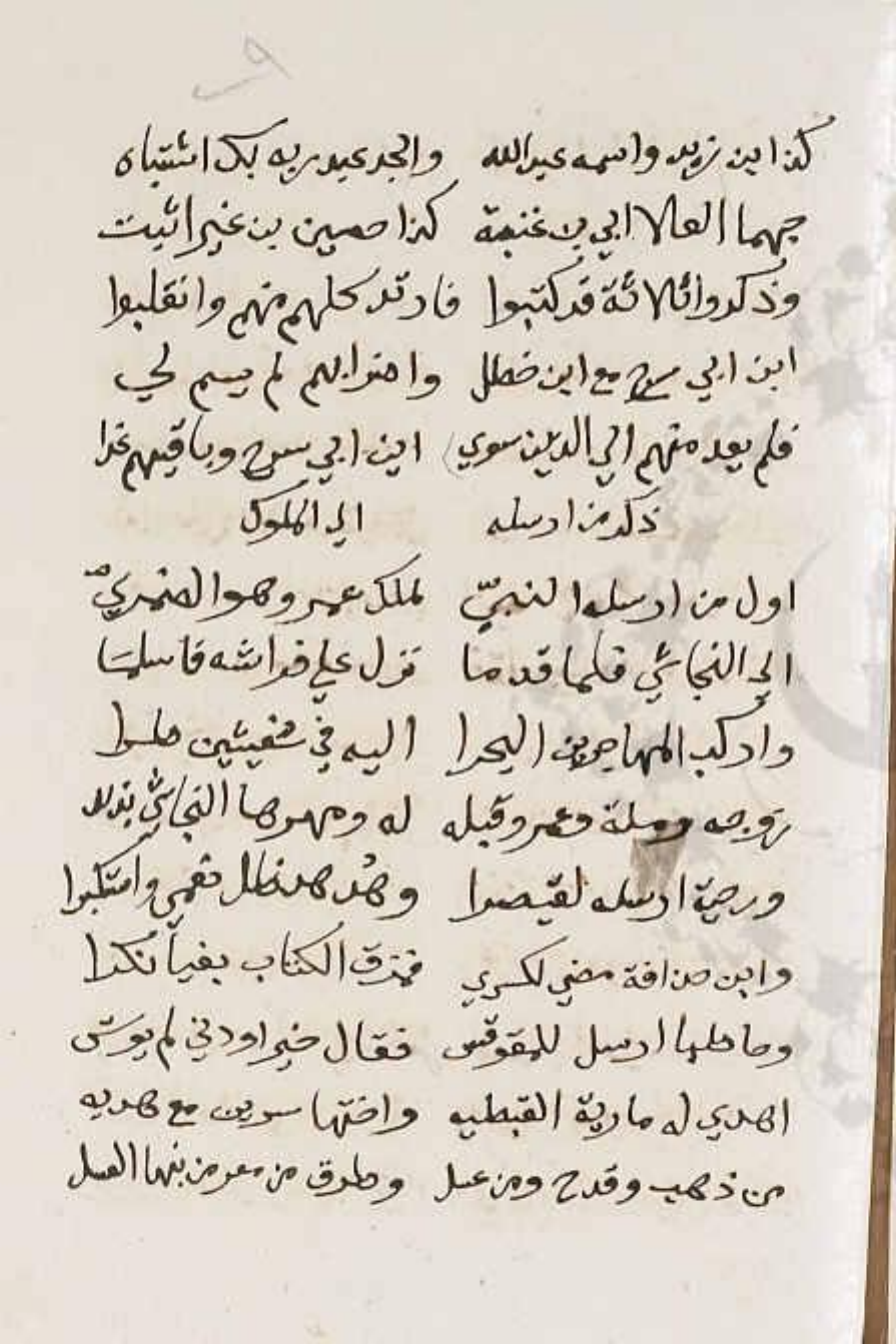 كذا ابن زيد واسمه عبدالله والجد عبد ربه بك اشتباه
جهما العلا ابي بن غنيمة كذا حصين بن نمير اثبت
وذكروا ثلاثة قد كتبوا فارتد كلهم منهم وانقلبوا
ابن ابي سرح مع ابن خطل واخر ابهم لم يسم لي
فلم يعد منهم الي الدين سوي ابن ابي سرح وباقيهم غوا
ذكر من ارسله الي الملوك
اول من ارسله النبيّ لملك عمرو وهو الضمريّ
الي النجاشي فلما قدما نزل علي فراشه فاسلما
واركب المهاجرين البحرا اليه في سفينتين
زوجه رملة وعمرو قبله له ومهرها النجاشي بذله
ودحية ارسله لقيصرا وهُد هد فظل نعمي وامتكبرا
وابن حذافة مضي لكسري فمزق الكتاب بغياً نكرا
وحاطبا ارسل للمقوقس فقال خيرا ودني لم يوس
اهدي له مارية القبطيه واختها سيرين مع هديه
من ذهب وقدح ومن عسل وطرف من مصر من بنها العسل